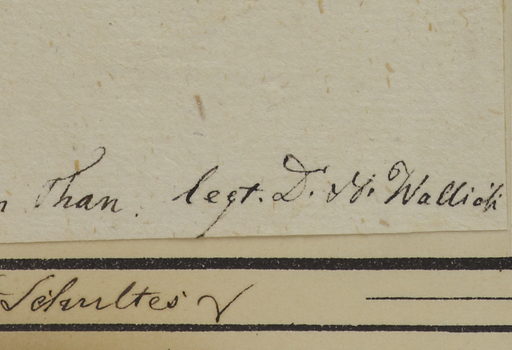 Than. legt. D. N. Wallich
Schultes